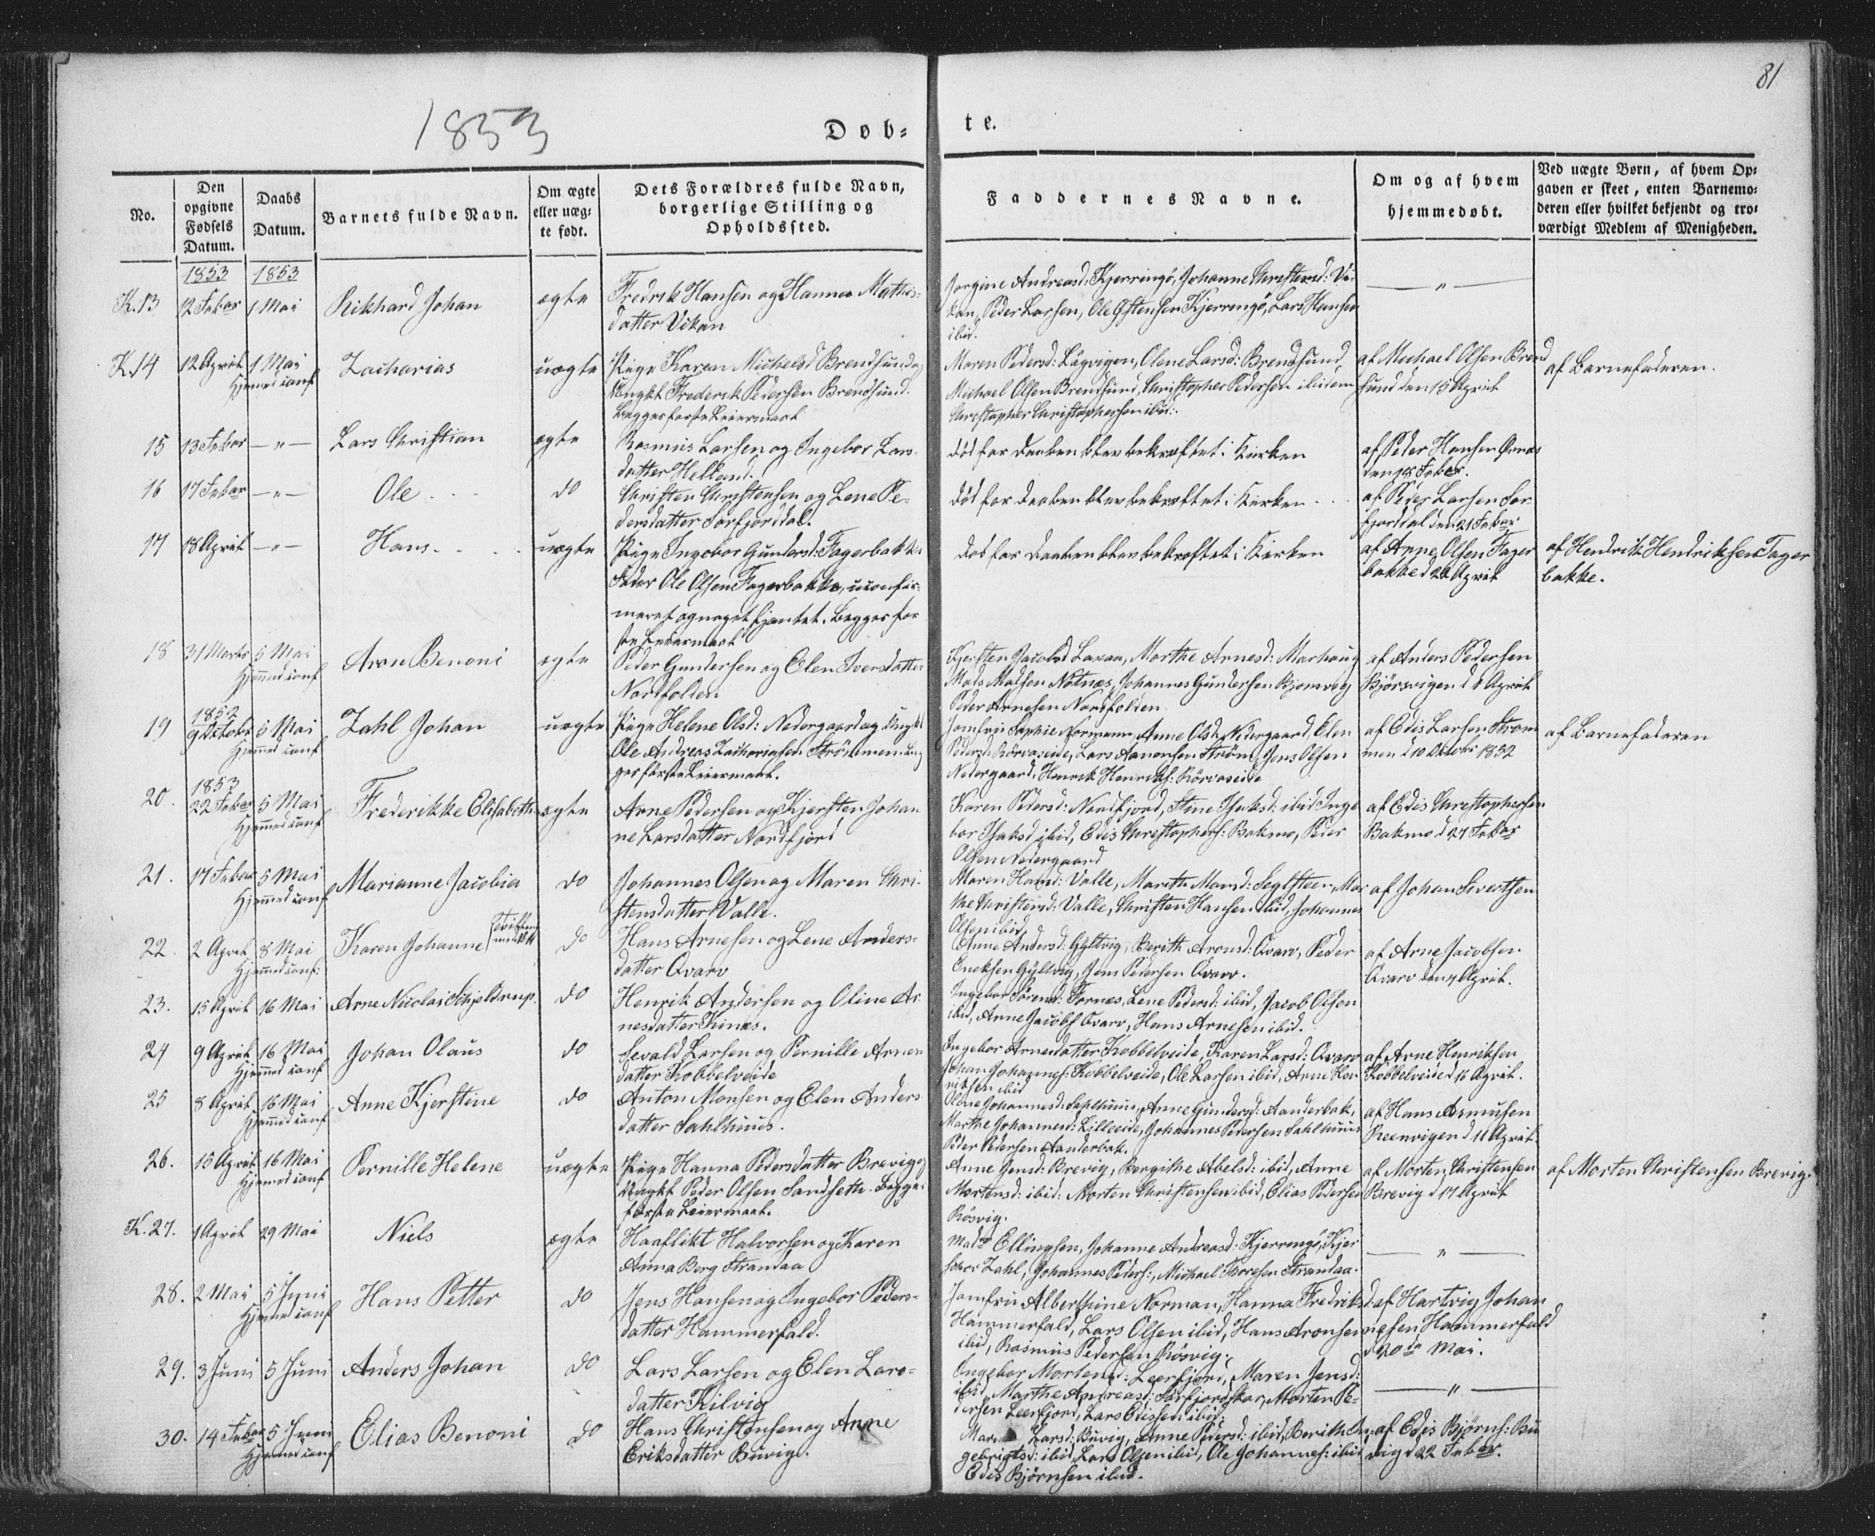 81
1853
Døb-
te.
No.
Den opgivne Fødsels Datum.
Daabs Datum.
Barnets fulde Navn.
Om ægte eller uæg-te født.
Dets Forældres fulde Navn, borgerlige Stilling og Opholdssted.
Faddernes Navne.
Om og af hvem hjemmedøbt.
Ved uægte Børn, af hvem Op-gaven er skeet, enten Barnemo-deren eller hvilket bekjendt og tro-værdigt Medlem af Menigheden.
1853 1853
K.13 12 Febar 1 Mai Rikhard Johan ægte Fredrik Hansen og Hanna Mathis-
datter Vikan
Jorgine Andreasd: Kjerringö, Johanne Christensd: Vi-
kan, Peder Larsen, Ole Kjerringö, Lars Hansen
ibid. — " —
K.14 12 April 1 Mai Hjemmed: conf Zacharias uægte Pige Karen Michelsd Brendsund og
Ungkl Frederik Pedersen Brendsund.
Begges første Leiermaal
Maren Pedersd: Lägvigen, Olene Larsd: Brendsund,
Michael Olsen Brendsund, Christopher Pedersen ibidem
Christopher Christophersen ibid:
af Michael Olsen Brend
sund den 13 April
af Barnefaderen.
15 13 Febar — " — Lars Christian ægte Rasmus Larsen og Ingebor Lars-
datter Helland.
død før Daaben blev bekræftet i Kirken
af Peder Hansen
den 18 Febar.
16 17 Febar — " — Ole do Christen Christensen og Lene Pe-
dersdatter Sørfjorddal.
død før Daaben blev bekræftet i Kirken
af Peder Larsen Sør
fjorddal den 21 Febar
17 18 April — " — Hans uægte Pige Ingebor Gundersd: Fagerbakke
Fader Ole Olsen Fagerbakke, uconfir-
meret og noget fjantet. Begges før
ste Leiermaal
død før Daaben blev bekræftet i Kirken
af Anne Olsen Fager
bakke d 20 April
af Hendrik Hendriksen Fager
bakke.
18 31 Marts 5 Mai Hjemmed conf Aron Benoni ægte Peder Gundersen og Elen Iversdatter
Nordfolden
Kjersten Jacobsd Laxaa, Marthe Arnesd: Marhaug
Mads Madsen Nötnes, Johannes Gundersen
Peder Arnesen Nordfolden
af Anders Pedersen
Björsvigen d 8 April
19 1852 9 Oktobr 5 Mai Hjemmed conf Zahl Johan uægte Pige Helene Olsd: Nedergaard og Ungkl
Ole Andreas Zachariassen Strömmen. Beg
ges første Leiermaal.
Jomfru Sophie Normann, Anne Olsd: Nedergaard, Elen
Pedersd Rörvaseide, Lars Aanensen Ström, Jens Olsen
Nedergaard, Henrik Henriks: Rörvaseide
af Edis Larsen Ström
men d 10 Oktobr 1852
af Barnefaderen
20. 1853 22 Febar 5 Mai Hjemmed conf Frederikke Elisabeth ægte Arne Pedersen og Kjersten Johan
ne Larsdatter Nordfjord
Karen Pedersd: Nordfjord, Stine Isaksd: ibid Inge
bor Isaksd ibid, Edis Christophers: Bakmo, Peder
Olsen Nedergaard
af Edis Christophersen
Bakmo d 27 Febar
21. 17 Febar 5 Mai Hjemmed conf Marianne Jacobia do Johannes Olsen og Maren Chri-
stensdatter Valle.
Maren Hansd: Valle, Marith Mons d: Seglsteen, Mar
the Christensd: Valle, Christen Hansen ibid, Johannes
Olsen ibid.
af Johan Sivertsen
22. 2 April 8 Mai Hjemmed conf: Karen Johanne do Hans Arnesen og Lene Anders-
datter Qvarv
Anne Andersd: Gyltvig, Berith Aronsd: Qvarv, Peder
Gyltvig, Jens Pedersen Qvarv.
af Arne Jacobsen
Qvarv den 4 April.
23. 15 April 16 Mai Arne Nicolai Schjeldrup. do Henrik Andersen og Oline Ar
nesdatter Finnes.
Ingebor Sörensd: Tornes, Lene Pedersd: ibid, Jacob Olsen
ibid, Arne Jacobs Qvarv, Hans Arnesen ibid.
24 9 April 16 Mai Hjemmed conf Johan Olaus do Sevald Larsen og Pernille Arnen
datter Kobbelveide
Ingebor Arnesdatter Kobbelveide, Karen Larsd: Qvarv
Johan Johannes: Kobbelveide, Ole Larsen ibid, Arne Hen
riksen ibid
af Arne Henriksen
Kobbelveide d 16 April.
25 8 April 16 Mai Hjemmed conf Anne Kjerstine do Anton Monsen og Elen Anders
datter Sahlhuus.
Oline Johannesd: Sahlhuus, Anne Gundersd: Aanderbak,
Marthe Johannesd: Lilleeide, Johannes Pedersen Sahlhuus
Peder Pedersen Aanderbak.
af Hans Asmusen
Reenvigen d 11 April
26. 15 April 16 Mai Hjemmed conf Pernille Helene uægte Pige Hanna Pedersdatter Brevig og
Ungkl Peder Olsen Sandseth. Begges
første Leiermaal.
Anne Jensd: Brevig, Bergithe Abelsd: ibid, Anne
Mortensd: ibid: Morten Christensen ibid, Elias Pedersen
Rösvig.
af Morten Christensen
Brevig d 17 April
af Morten Christensen Brevig.
K.27. 1 April 29 Mai Niels ægte Haaflikt Halvorsen og Karen
Anna Berg Strandaa
Mad: Ellingsen, Johanne Andreasd: Kjerringö, Kjer
Zahl, Johannes Peders:, Michael Thoresen Strandaa.
— " —
28. 2 Mai 5 Juni Hjemmed conf Hans Petter do Jens Hansen og Ingebor Peders-
datter Hammerfald.
Jomfru Alberthine Norman, Hanna Fredriksd:
Hammerfald, Lars Olsen ibid, Hans Aronsen
ibid, Rasmus Pedersen Rösvig.
af Hartvig Johan
nesen Hammerfald
d 20de Mai.
29. 3 Juni 5 Juni Anders Johan do Lars Larsen og Elen Lars-
datter Kilvig
Ingebor Mortensd: Leerfjord, Maren Jensd:
ibid, Marthe Andreasd: Sörfjordskar, Morten Pe-
dersen Leerfjord, Lars Edissen ibid.
— " —
30. 14 Febar 5 Juni Hjemmed conf Elias Benoni do Hans Christensen og Anne
Eriksdatter Buvig.
Larsd: Buvig, Anne Pedersd: ibid, Berith In-
gebrigtsd: ibid, Lars Olsen ibid, Ole Johannes: ibid
Edis Björnsen ibid.
af Edis Björns: Bu
vig d 22 Febar.